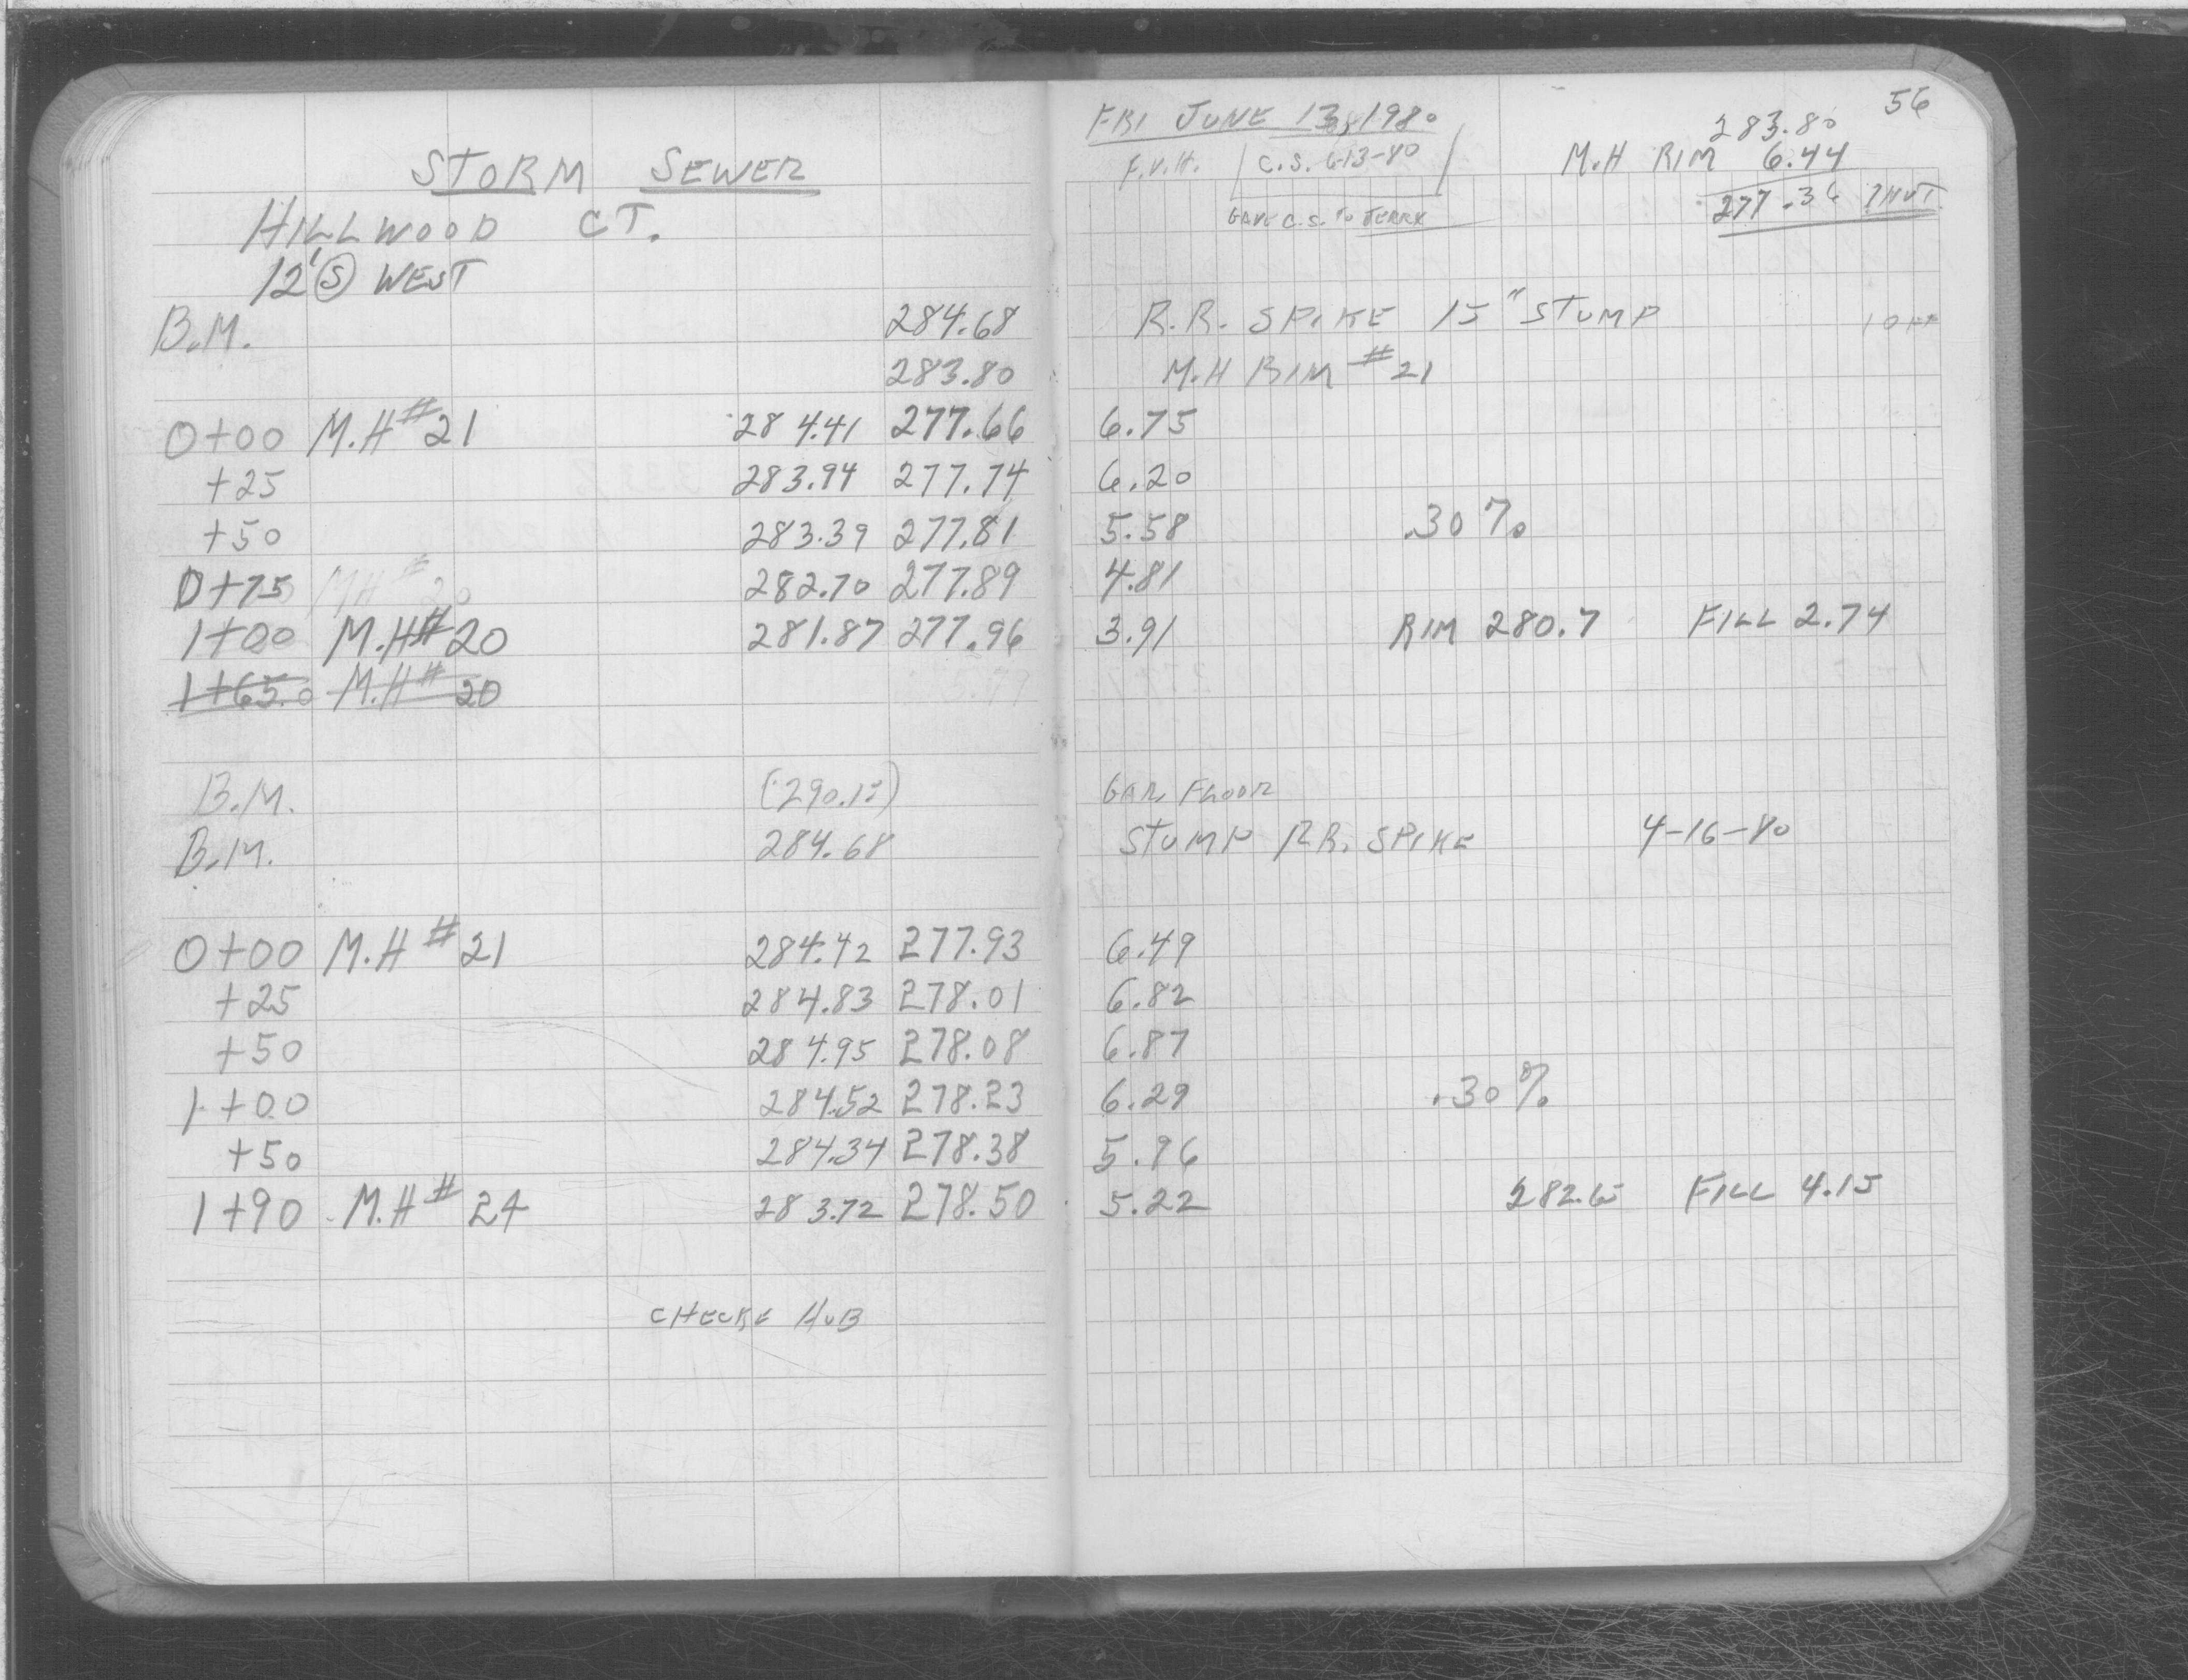 STORM SEWER
HILLWOOD CT.
12' Ⓢ WEST
B.M. 284.68
283.80
0+00 M.H #21 284.41 277.66
+25 283.94 277.74
+50 283.39 277.81
0+75 MH #20 282.70 277.89
1+00 M.H# 20 281.87 277.96
1+65.0 M.H# 20
B.M.
B.M. 284.68
0+00 M.H #21 284.42 277.93
+25 284.83 278.01
+50 284.95 278.08
1+00 284.52 278.23
+50 284.34 278.38
1+90 M.H# 24 283.72 278.50
CHECKE HUB
56
FRI JUNE 13, 1980
283.80
F.V.H. C.S. 6-13-80 M.H RIM 6.44
GAVE C.S. TO JERRY 277.36 INVT.
R.R. SPIKE 15" STUMP
M.H RIM #21
6.75
6.20
5.58 .30 %
4.81
3.91 RIM 280.7 FILL 2.74
GAR FLOOR
STUMP RR. SPIKE 4-16-80
6.49
6.82
6.87
6.29 .30 %
5.96
5.22 282.65 FILL 4.15